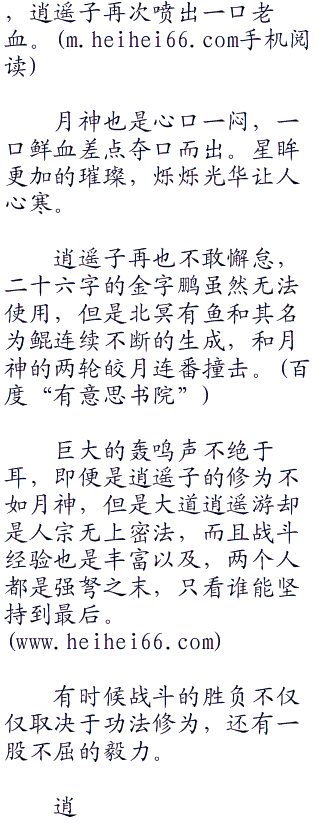 ，逍遥子再次喷出一口老
血。(m.heihei66.com手机阅
读)
月神也是心口一闷，一
口鲜血差点夺口而出。星眸
更加的璀璨，烁烁光华让人
心寒。
逍遥子再也不敢懈怠，
二十六字的金字鹏虽然无法
使用，但是北冥有鱼和其名
为鲲连续不断的生成，和月
神的两轮皎月连番撞击。(百
度“有意思书院”)
巨大的轰鸣声不绝于
耳，即便是逍遥子的修为不
如月神，但是大道逍遥游却
是人宗无上密法，而且战斗
经验也是丰富以及，两个人
都是强弩之末，只看谁能坚
持到最后。
(www.heihei66.com)
有时候战斗的胜负不仅
仅取决于功法修为，还有一
股不屈的毅力。
逍